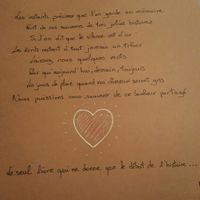 Les instants précieux que l'on garde en mémoire
Font de nos souvenirs de très jolies histoires
Si l'on dit que le silence est d'or
Les écrits restent à tout jamais un trésor
Laissez nous quelques mots
Pour qu'aujourd'hui, demain, toujours
Les jours de pluie quand nos cheveux seront gris
Nous puissions nous souvenir de ce bonheur partagé
Le seul livre qui ne donne que le début de l'histoire...